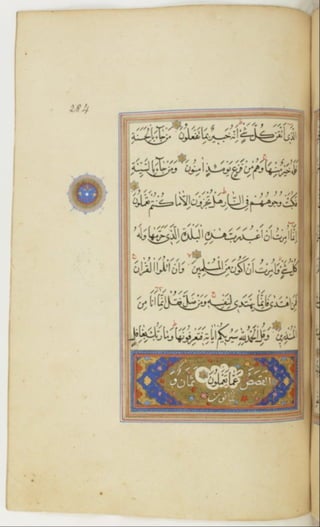 284
الذي أتقن كل شيء إنه خبير بما تفعلون من جاء بالحسنة
فله خير منها وهم من فزع يومئذ آمنون ومن جاء بالسيئة
فكبت وجوههم في النار هل تجزون إلا ما كنتم تعملون
إنما أمرت أن أعبد رب هذه البلدة الذي حرمها وله
كل شيء وأمرت أن أكون من المسلمين وأن أتلوا القرآن
فمن اهتدى فإنما يهتدي لنفسه ومن ضل فقل إنما أنا من
المنذرين وقل الحمد لله سيريكم آياته فتعرفونها وما ربك بغافل
عما تعملون
القصص ثمان و
ثمانون